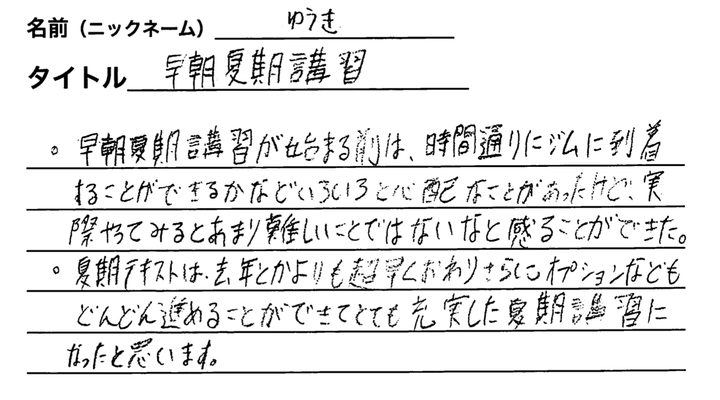 名前（ニックネーム） ゆうき
タイトル 早朝夏期講習
。早朝夏期講習が始まる前は、時間通りにジムに到着
することができるかなどいろいろと心配なことがあったけど、実
際やってみるとあまり難しいことではないなと感ることができた。
。夏期テキストは、去年とかよりも超早くおわりさらにオプションなども
どんどん進めることができてとても充実した夏期講習に
なったと思います。